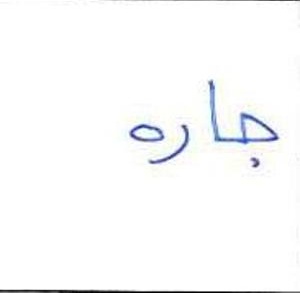 جاره